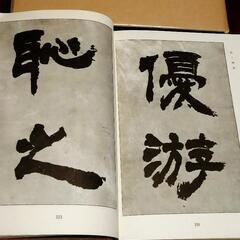 優游
恥之